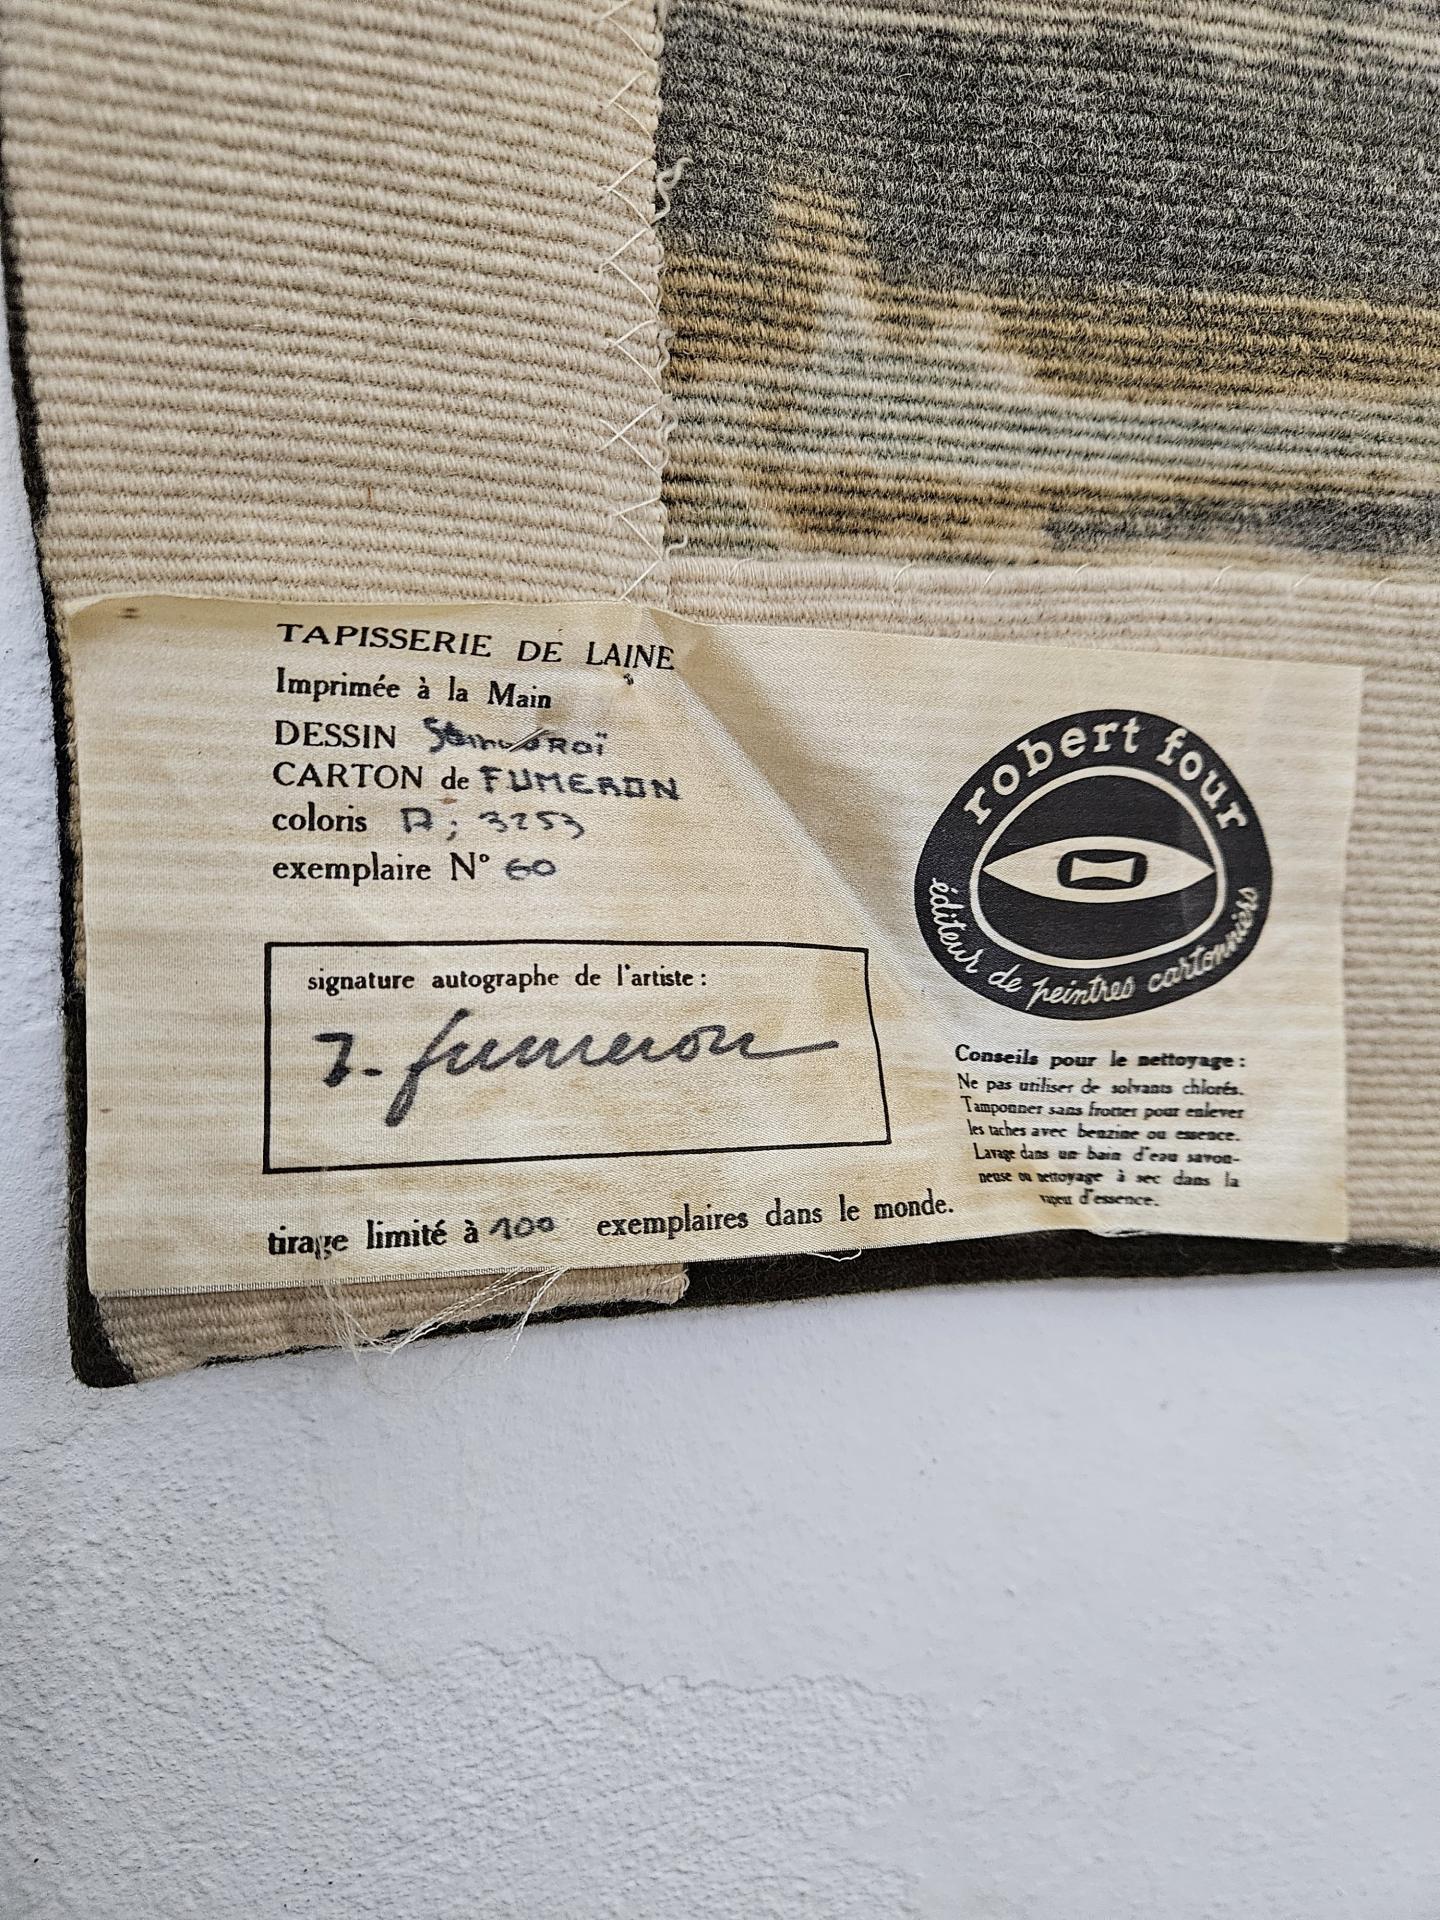 TAPISSERIE DE LAINE
Imprimée à la Main
DESSIN
CARTON de FUMERON
coloris A; 3253
exemplaire N° 60
signature autographe de l'artiste :
J. fumeron
tirage limité à 100 exemplaires dans le monde.
robert four
éditeur de peintres cartonniers
Conseils pour le nettoyage :
Ne pas utiliser de solvants chlorés.
Tamponner sans frotter pour enlever
les taches avec benzine ou essence.
Lavage dans un bain d'eau savon-
neuse ou nettoyage à sec dans la
vapeur d'essence.